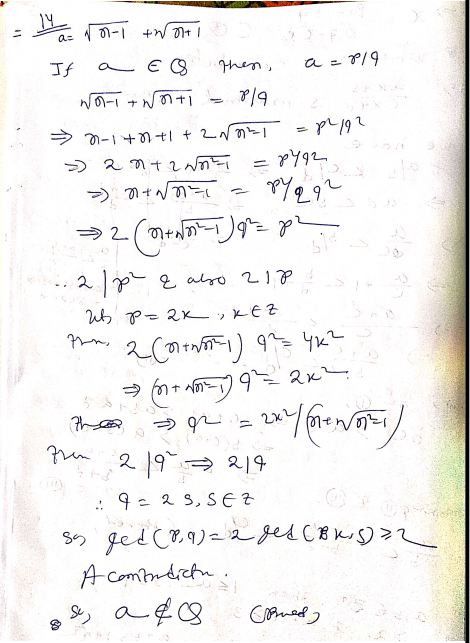 = 14 a = √n-1 + √n+1
If a ∈ Q then, a = p/q
√n-1 + √n+1 = p/q
⇒ n-1+n+1 + 2√n²-1 = p²/q²
⇒ 2n+2√n²-1 = p²/q²
⇒ n+√n²-1 = p²/2q²
⇒ 2(n+√n²-1)q² = p²
∴ 2|p² & also 2|p
let p = 2k, k ∈ Z
Then, 2(n+√n²-1) q² = 4k²
⇒ (n+√n²-1) q² = 2k².
⇒ q² = 2k²/(n+√n²-1)
Then 2|q² ⇒ 2|q
∴ q = 2s, s ∈ Z
So gcd(p,q) = 2 gcd(k,s) ≥ 2
A contradictn.
So, a ∉ Q (Proved)